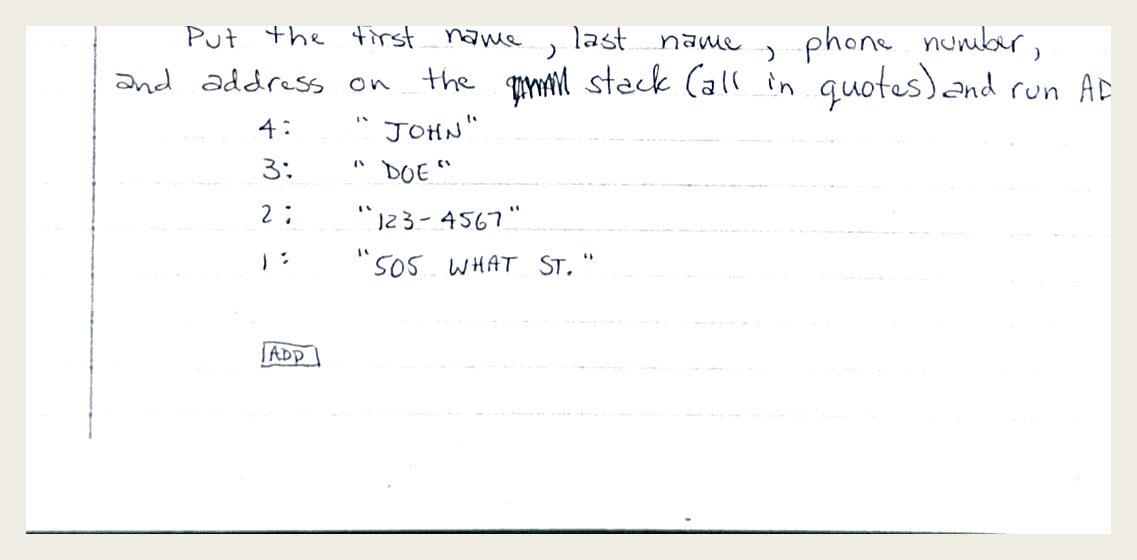 Put the first name, last name, phone number,
and address on the stack (all in quotes) and run AD
4: "JOHN"
3: "DOE"
2: "123-4567"
1: "505 WHAT ST."
ADD